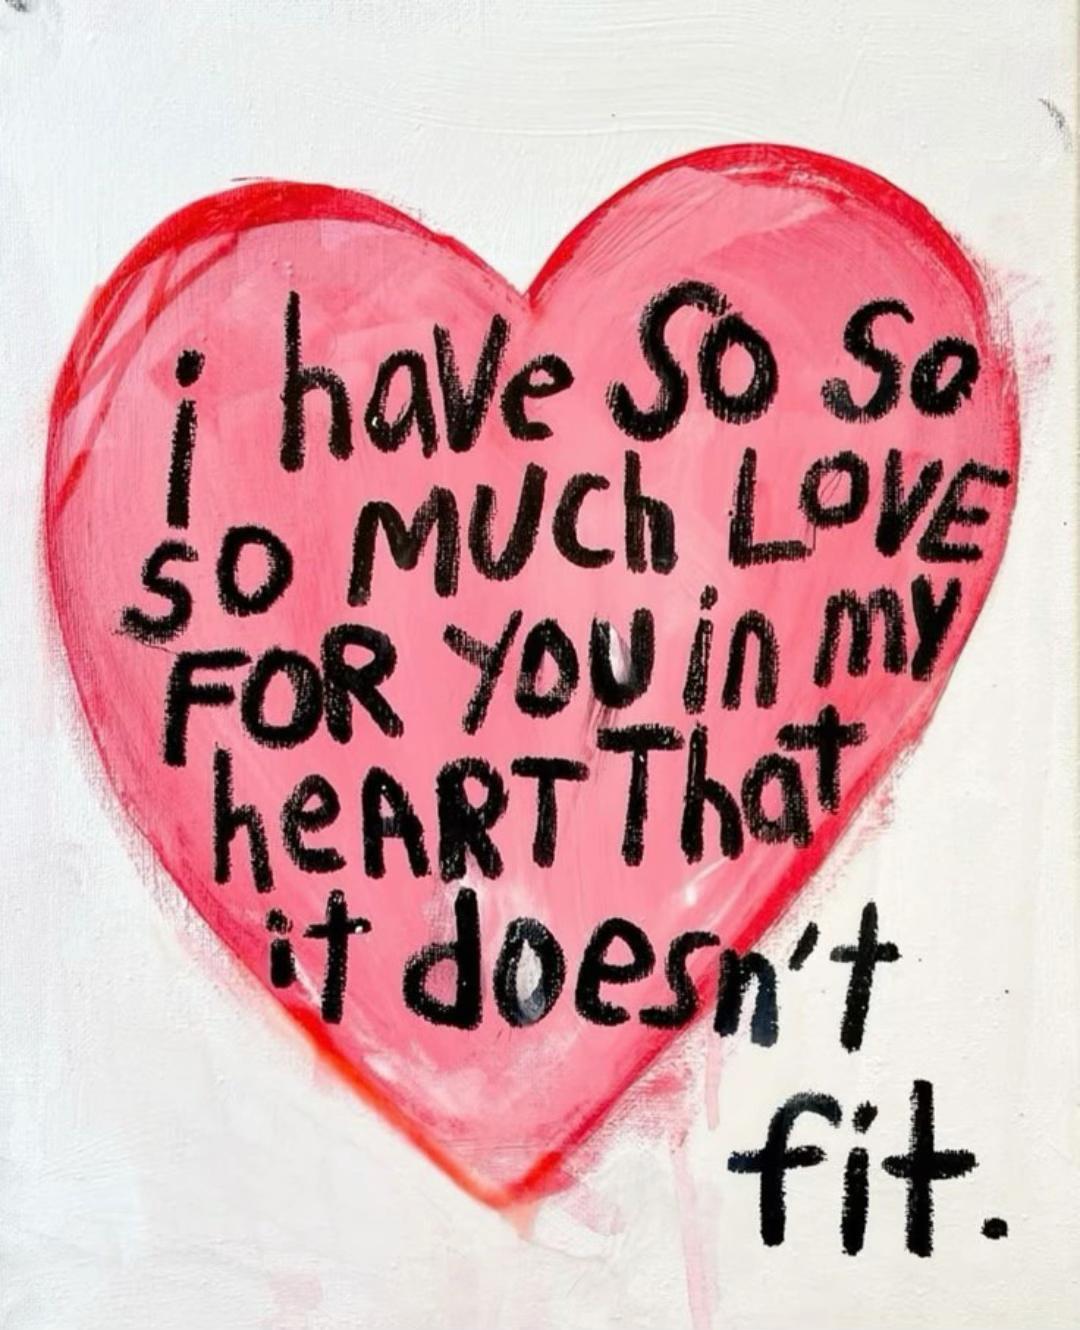 i have so so
so MUCh LOVE
FOR YOU in my
heART That
it doesn't
fit.